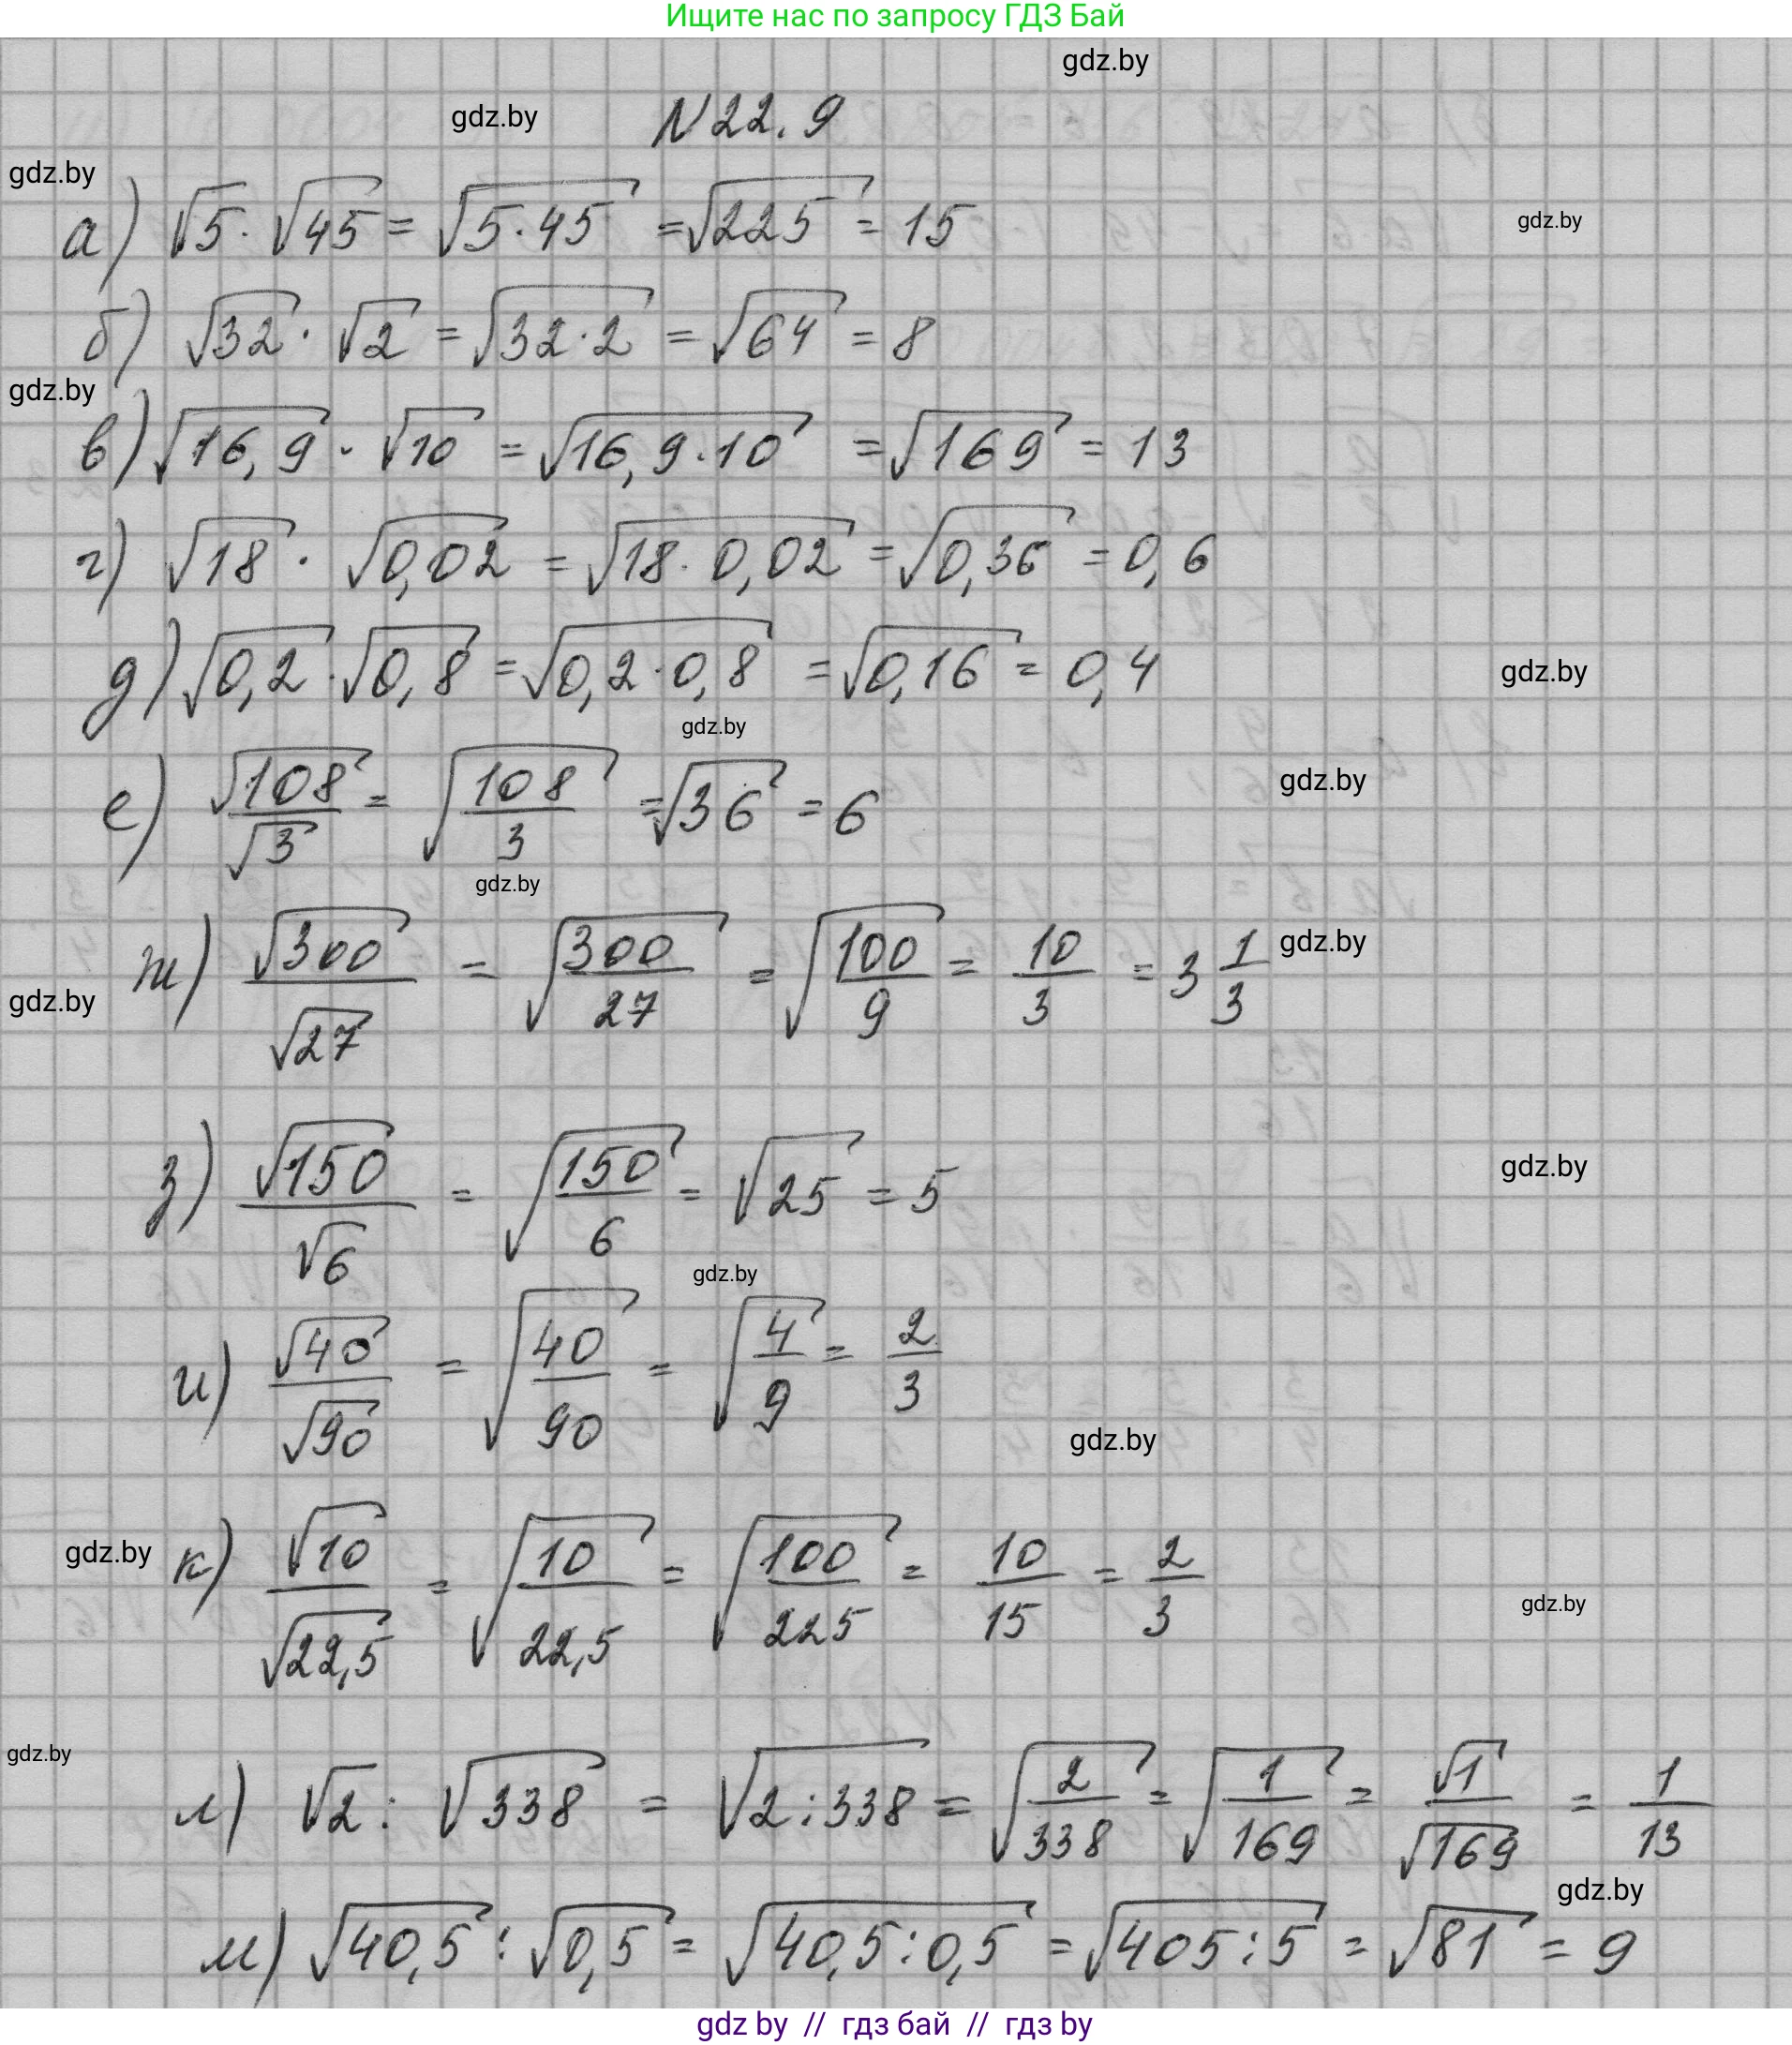 Ищите нас по запросу ГДЗ Бай
gdz.by
gdz.by
N 22.9
gdz.by
а) √5 · √45 = √(5·45) = √225 = 15
gdz.by
б) √32 · √2 = √(32·2) = √64 = 8
gdz.by
в) √16,9 · √10 = √(16,9·10) = √169 = 13
г) √18 · √0,02 = √(18·0,02) = √0,36 = 0,6
д) √0,2 · √0,8 = √(0,2·0,8) = √0,16 = 0,4
gdz.by
gdz.by
е) √108/√3 = √(108/3) = √36 = 6
gdz.by
gdz.by
ж) √300/√27 = √(300/27) = √(100/9) = 10/3 = 3 1/3
gdz.by
gdz.by
з) √150/√6 = √(150/6) = √25 = 5
gdz.by
gdz.by
и) √40/√90 = √(40/90) = √(4/9) = 2/3
gdz.by
gdz.by
к) √10/√22,5 = √(10/22,5) = √(100/225) = 10/15 = 2/3
gdz.by
gdz.by
л) √2 : √338 = √(2:338) = √(2/338) = √(1/169) = √1/√169 = 1/13
gdz.by
м) √40,5 : √0,5 = √(40,5:0,5) = √(405:5) = √81 = 9
gdz by // гдз бай // гдз by